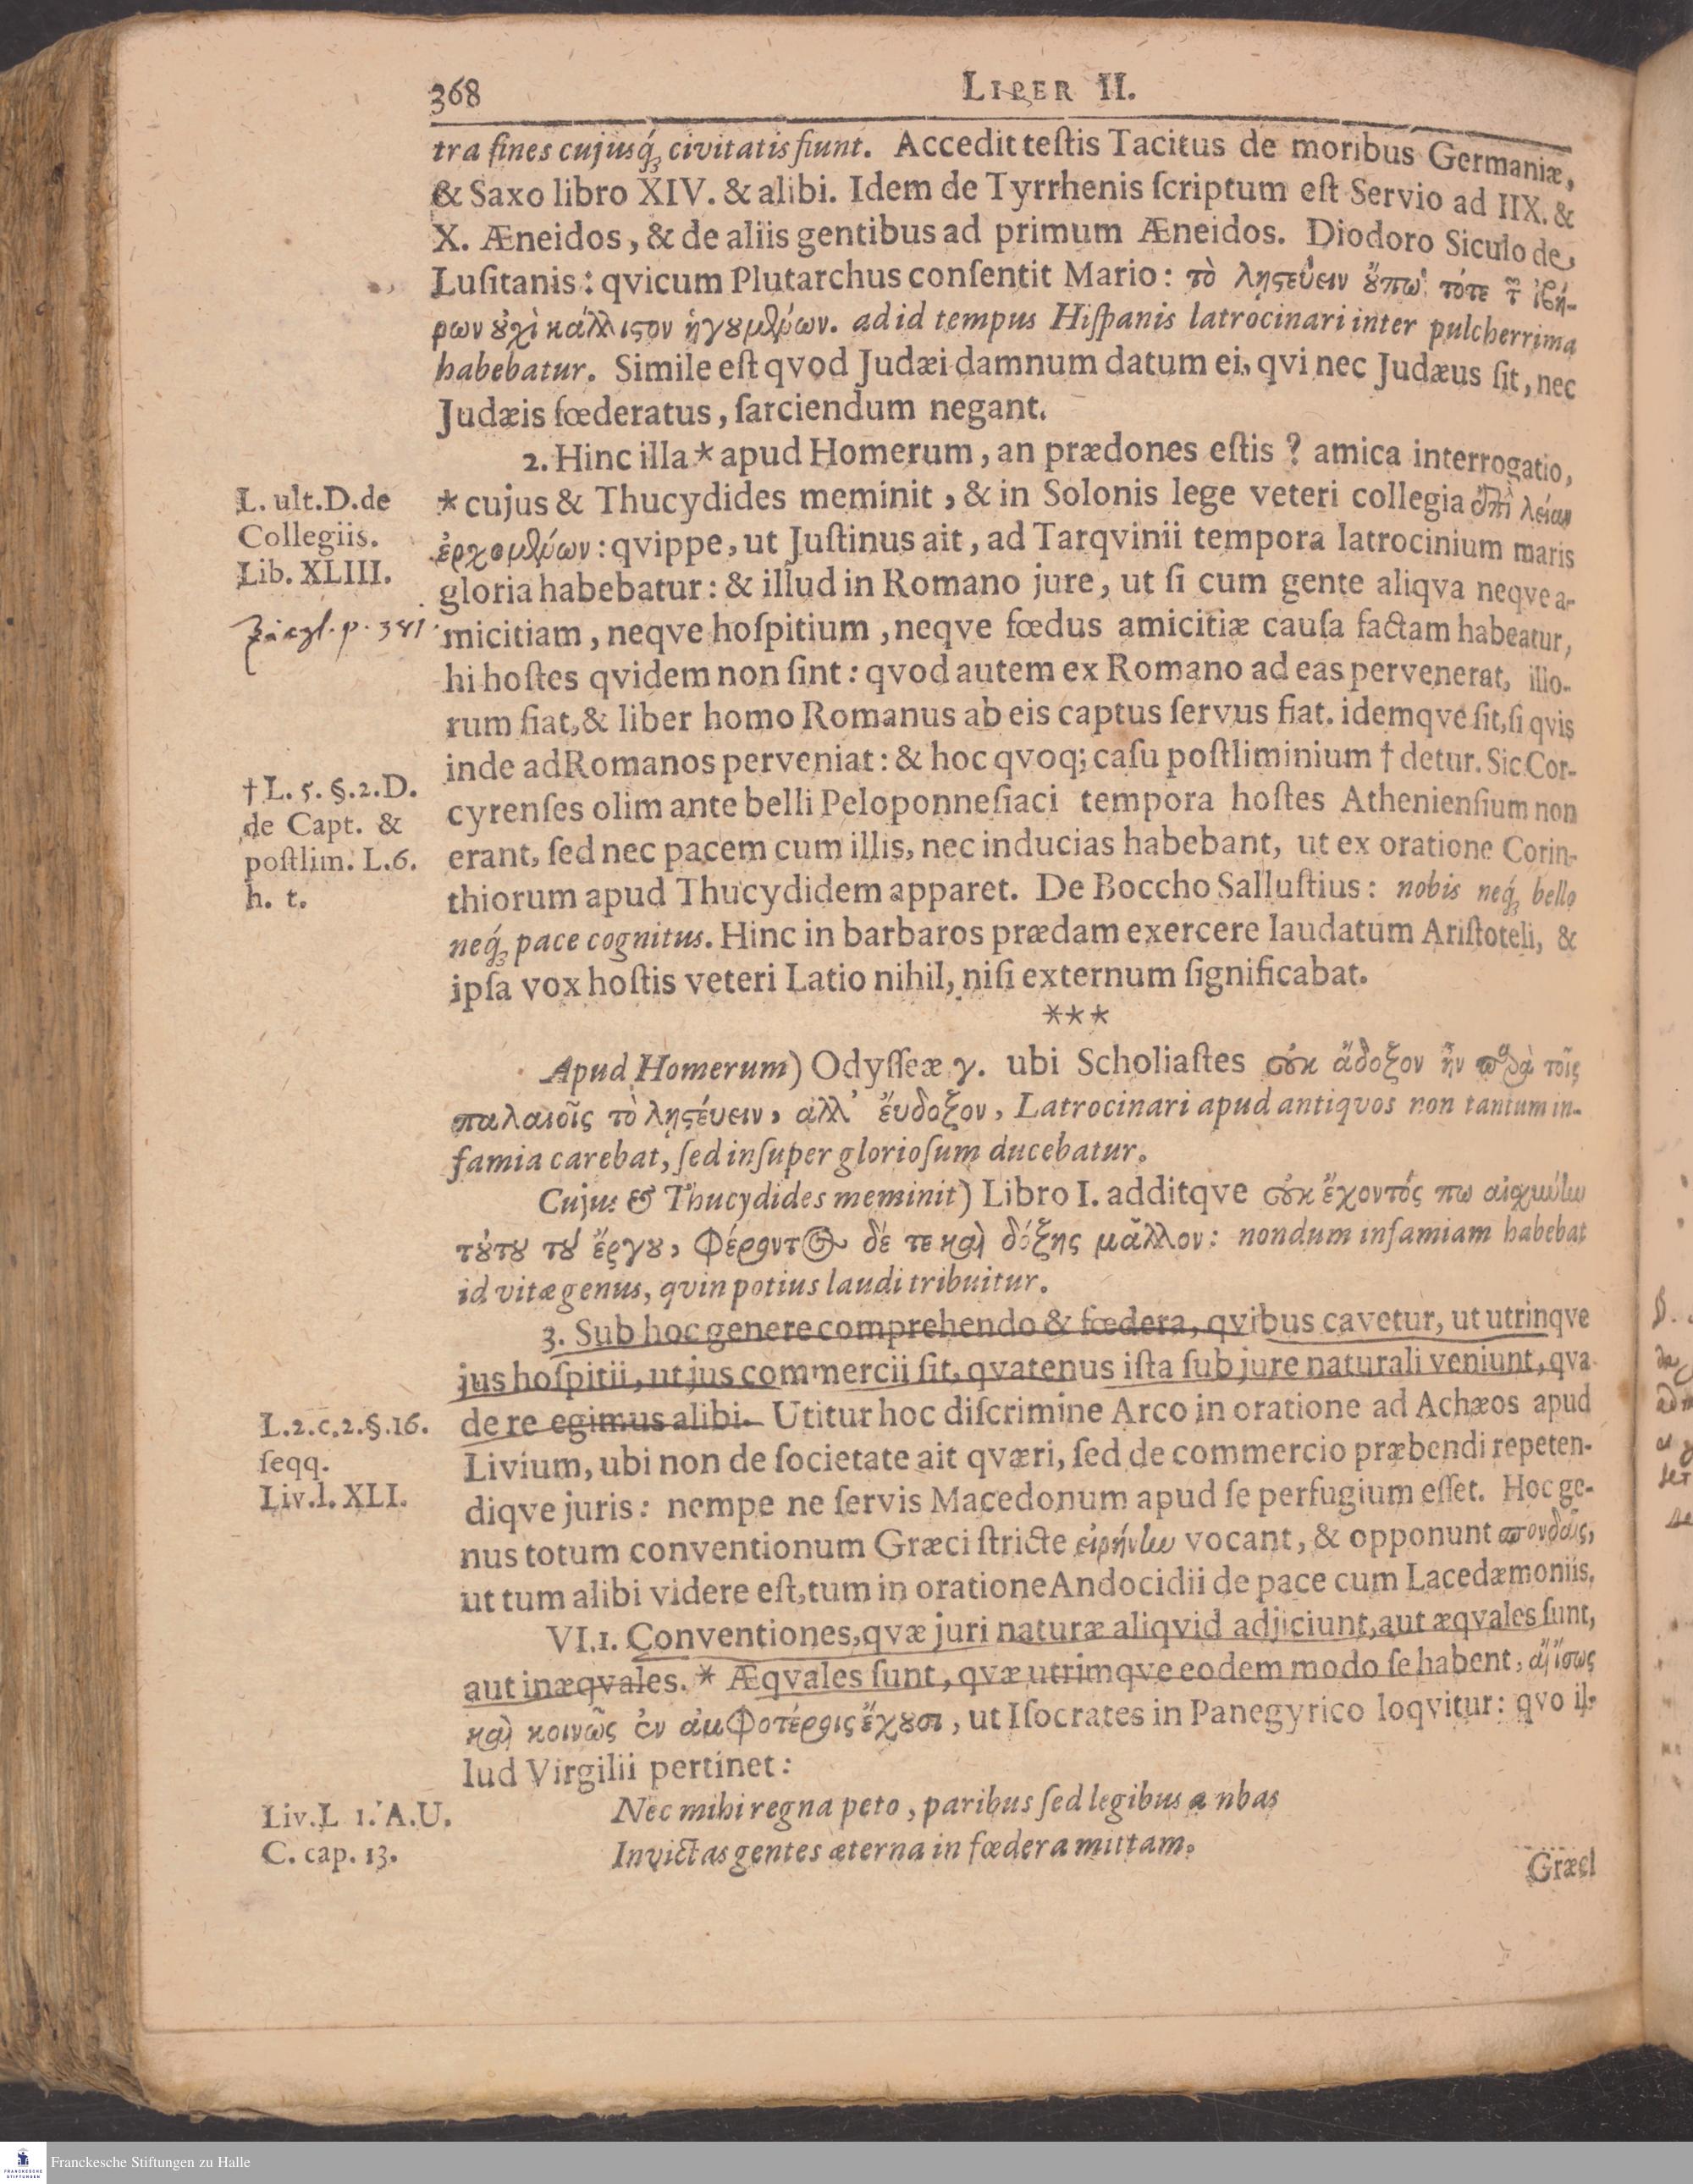 368 LIBER II.
tra fines cujusq́ꝫ civitatis fiunt. Accedit teſtis Tacitus de moribus Germaniæ,
& Saxo libro XIV. & alibi. Idem de Tyrrhenis ſcriptum eſt Servio ad IIX. &
X. Æneidos, & de aliis gentibus ad primum Æneidos. Diodoro Siculo de
Luſitanis: qvicum Plutarchus conſentit Mario: τὸ λῃϛεύειν ȣ̓́πω τότε τ̃ ἰβή-
ρων ȣ̓χὶ κάλλιϛον ἡγȣμθρ́ων. ad id tempus Hiſpanis latrocinari inter pulcherrima
habebatur. Simile eſt qvod Judæi damnum datum ei, qvi nec Judæus ſit, nec
Judæis fœderatus, ſarciendum negant.
2. Hinc illa * apud Homerum, an prædones eſtis? amica interrogatio,
L. ult. D. de
Collegiis.
Lib. XLIII.
* cujus & Thucydides meminit, & in Solonis lege veteri collegia ἐπὶ λείαν
ἐρχομθρ́ων: qvippe, ut Juſtinus ait, ad Tarqvinii tempora latrocinium maris
gloria habebatur: & illud in Romano jure, ut ſi cum gente aliqva neqve a-
p. 381.
micitiam, neqve hoſpitium, neqve fœdus amicitiæ cauſa factam habeatur,
hi hoſtes qvidem non ſint: qvod autem ex Romano ad eas pervenerat, illo-
rum fiat, & liber homo Romanus ab eis captus ſervus fiat. idemqve ſit, ſi qvis
inde ad Romanos perveniat: & hoc qvoq; caſu poſtliminium † detur. Sic Cor-
† L. 5. §. 2. D.
de Capt. &
poſtlim. L. 6.
h. t.
cyrenſes olim ante belli Peloponneſiaci tempora hoſtes Athenienſium non
erant, ſed nec pacem cum illis, nec inducias habebant, ut ex oratione Corin-
thiorum apud Thucydidem apparet. De Boccho Salluſtius: nobis neq́ꝫ bello
neq́ꝫ pace cognitus. Hinc in barbaros prædam exercere laudatum Ariſtoteli, &
ipſa vox hoſtis veteri Latio nihil, niſi externum ſignificabat.
***
Apud Homerum) Odyſſeæ γ. ubi Scholiaſtes οὐκ ἄδοξον ἦν παρὰ τοῖς
παλαιοῖς τὸ λῃϛέυειν, ἀλλ' ἔυδοξον, Latrocinari apud antiqvos non tantum in-
famia carebat, ſed inſuper glorioſum ducebatur.
Cujus & Thucydides meminit) Libro I. additqve οὐκ ἔχοντός πω αἰσχύνην
τȣ́τȣ τȣ͂ ἔργȣ, Φέροντος δέ τε καὶ δόξης μᾶλλον: nondum infamiam habebat
id vitæ genus, qvin potius laudi tribuitur.
3. Sub hoc genere comprehendo & fœdera, qvibus cavetur, ut utrinqve
jus hoſpitii, ut jus commercii ſit, qvatenus iſta ſub jure naturali veniunt, qva
L. 2. c. 2. §. 16.
ſeqq.
Liv. l. XLI.
de re egimus alibi. Utitur hoc diſcrimine Arco in oratione ad Achæos apud
Livium, ubi non de ſocietate ait qværi, ſed de commercio præbendi repeten-
diqve juris: nempe ne ſervis Macedonum apud ſe perfugium eſſet. Hoc ge-
nus totum conventionum Græci ſtricte εἰρήνην vocant, & opponunt σπονδαῖς,
ut tum alibi videre eſt, tum in oratione Andocidii de pace cum Lacedæmoniis.
VI. 1. Conventiones, qvæ juri naturæ aliqvid adjiciunt, aut æqvales ſunt,
aut inæqvales. * Æqvales ſunt, qvæ utrimqve eodem modo ſe habent, αἳ ἴσως
καὶ κοινῶς ἐν ἀμΦοτέροις ἔχȣσι, ut Iſocrates in Panegyrico loqvitur: qvo il-
lud Virgilii pertinet:
Liv. L 1. A. U.
C. cap. 13.
Nec mihi regna peto, paribus ſed legibus a nbas
Invictas gentes æterna in fœdera mittam.
Græcl
Franckesche Stiftungen zu Halle